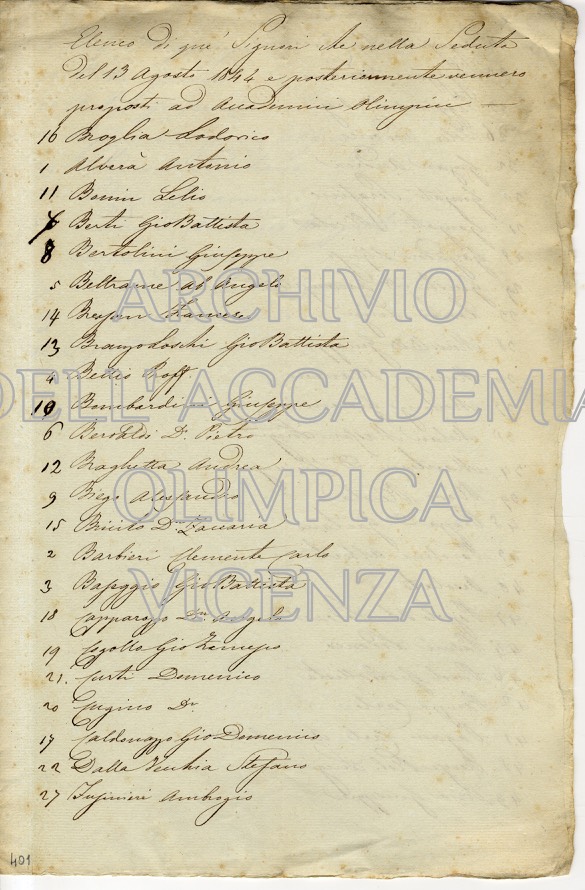 Elenco di que' Signori che nella Seduta
del 13 Agosto 1844 e posteriormente vennero
proposti ad Accademici Olimpici —
16 Broglia Lodovico
1 Alverà Antonio
11 Bonin Lelio
Berti Gio Battista
8 Bertolini Giuseppe
5 Beltrame ab. Angelo
14
13 Branzo Loschi Gio Battista
4 Bellio Proff.
10 Bombardini Giuseppe
6 Beroaldi Dr. Pietro
12 Braghetta Andrea
9 Biego Alessandro
15 Zaccaria
2 Barbieri Clemente Carlo
3 Baseggio Gio Battista
18 Capparozzo Dn Angelo
19 Cogollo Gio
21. Curti Domenico
20 Cugino Dr.
17 Caldonazzo Gio Domenico
22 Dalla Vecchia Stefano
27 Fusinieri Ambrogio
401
ARCHIVIO
DELL'ACCADEMIA
OLIMPICA
VICENZA